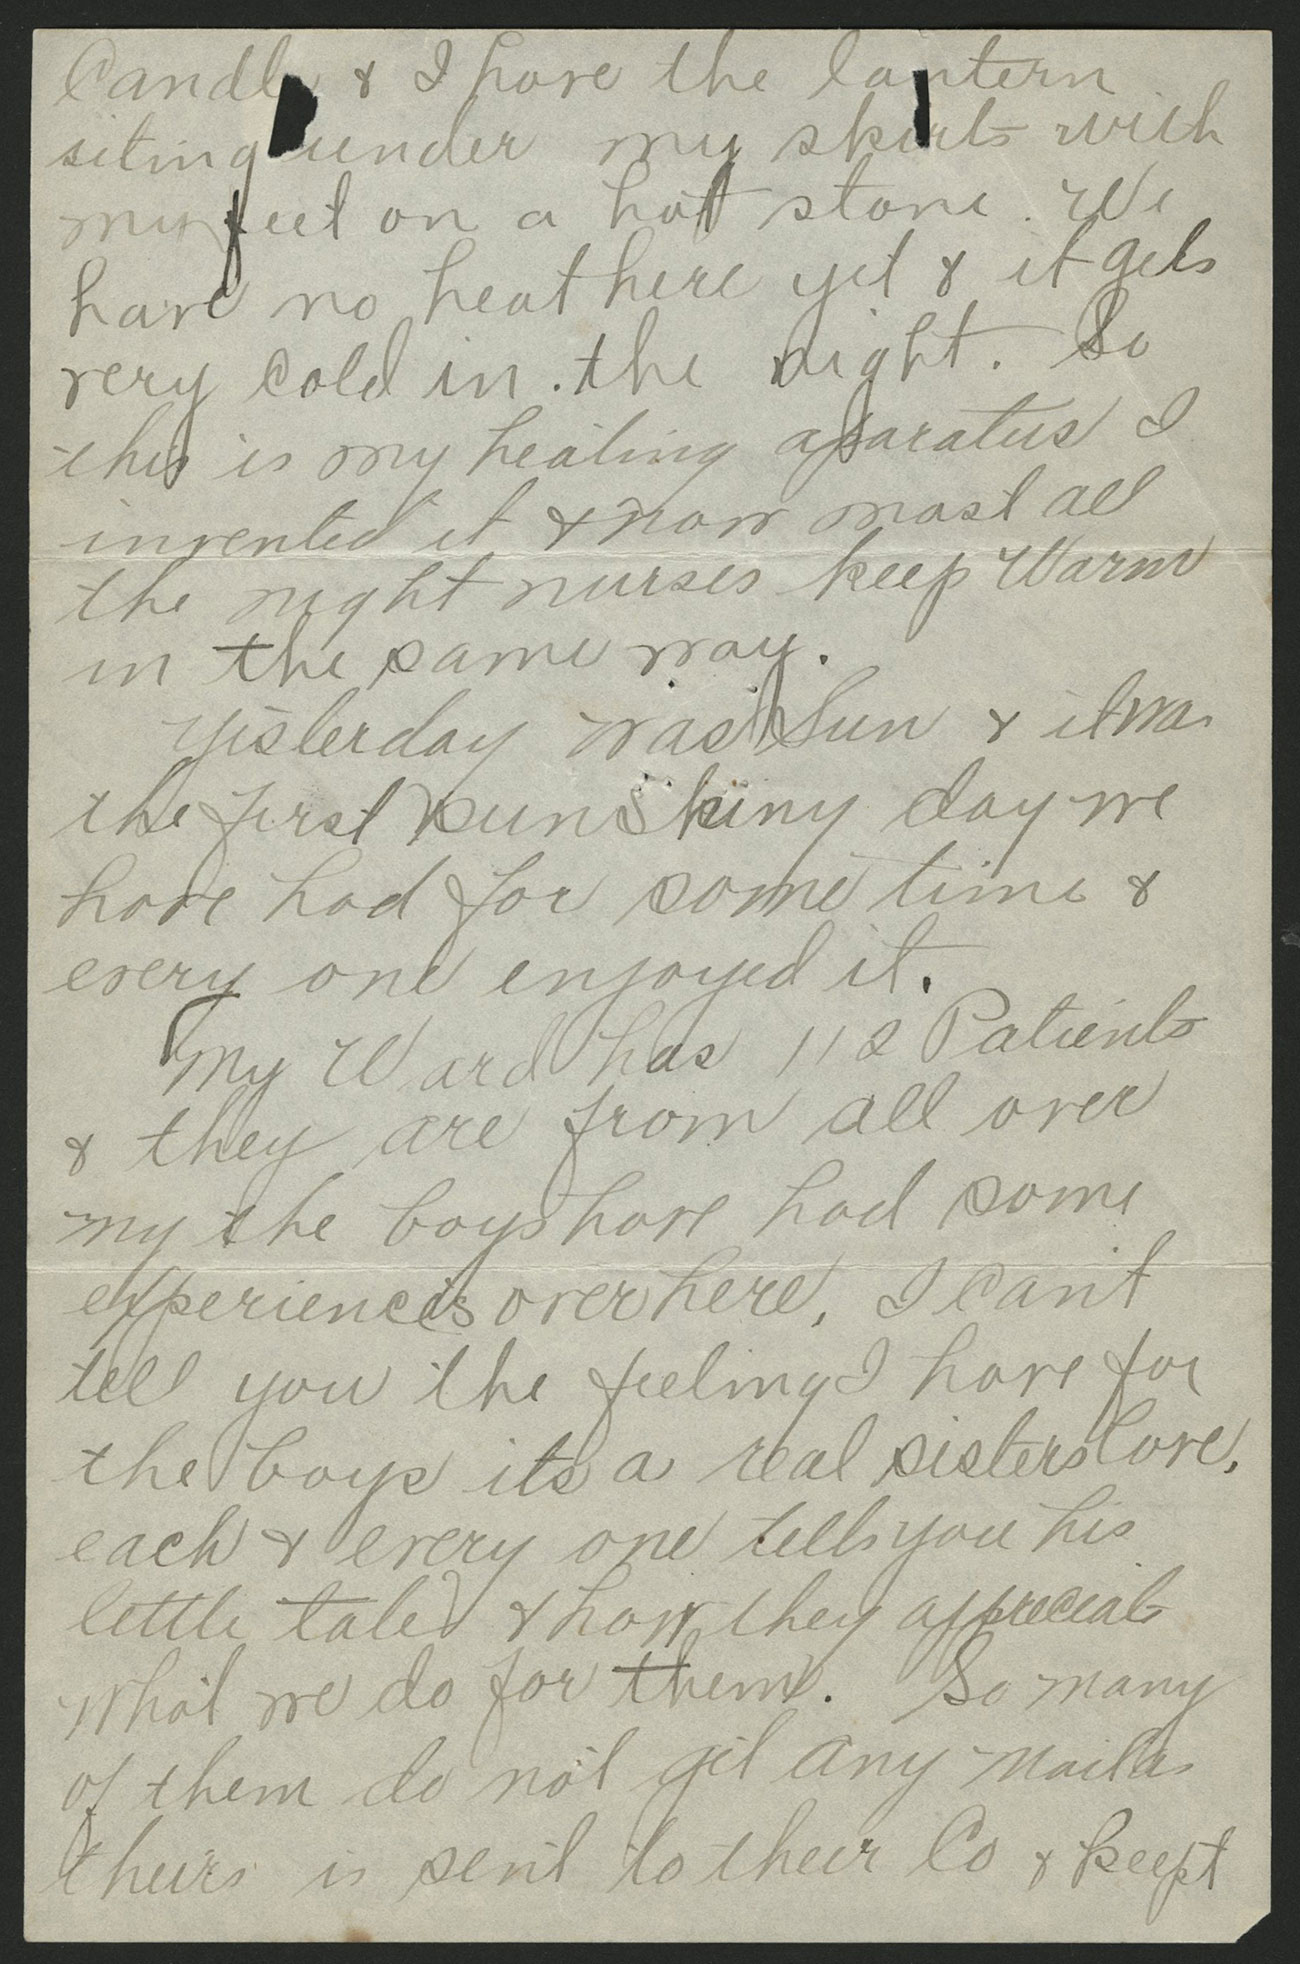 Candle & I have the lantern
siting under my skirts with
my feet on a hot stone. We
have no heat here yet & it gets
very cold in. the night. So
this is my heating aparatus I
invented it & now most all
the night nurses keep Warm
in the same way.
Yesterday was Sun & it was
the first sunshiny day we
have had for some time &
every one enjoyed it.
My Ward has 112 Patients
& they are from all over
my the boys have had some
experiences over here, I can't
tell you the feeling I have for
the boys its a real sisters love,
each & every one tells you his
little tale & how they appreciate
what we do for them. So many
of them do not get any mail as
theirs is sent to their Co & keept